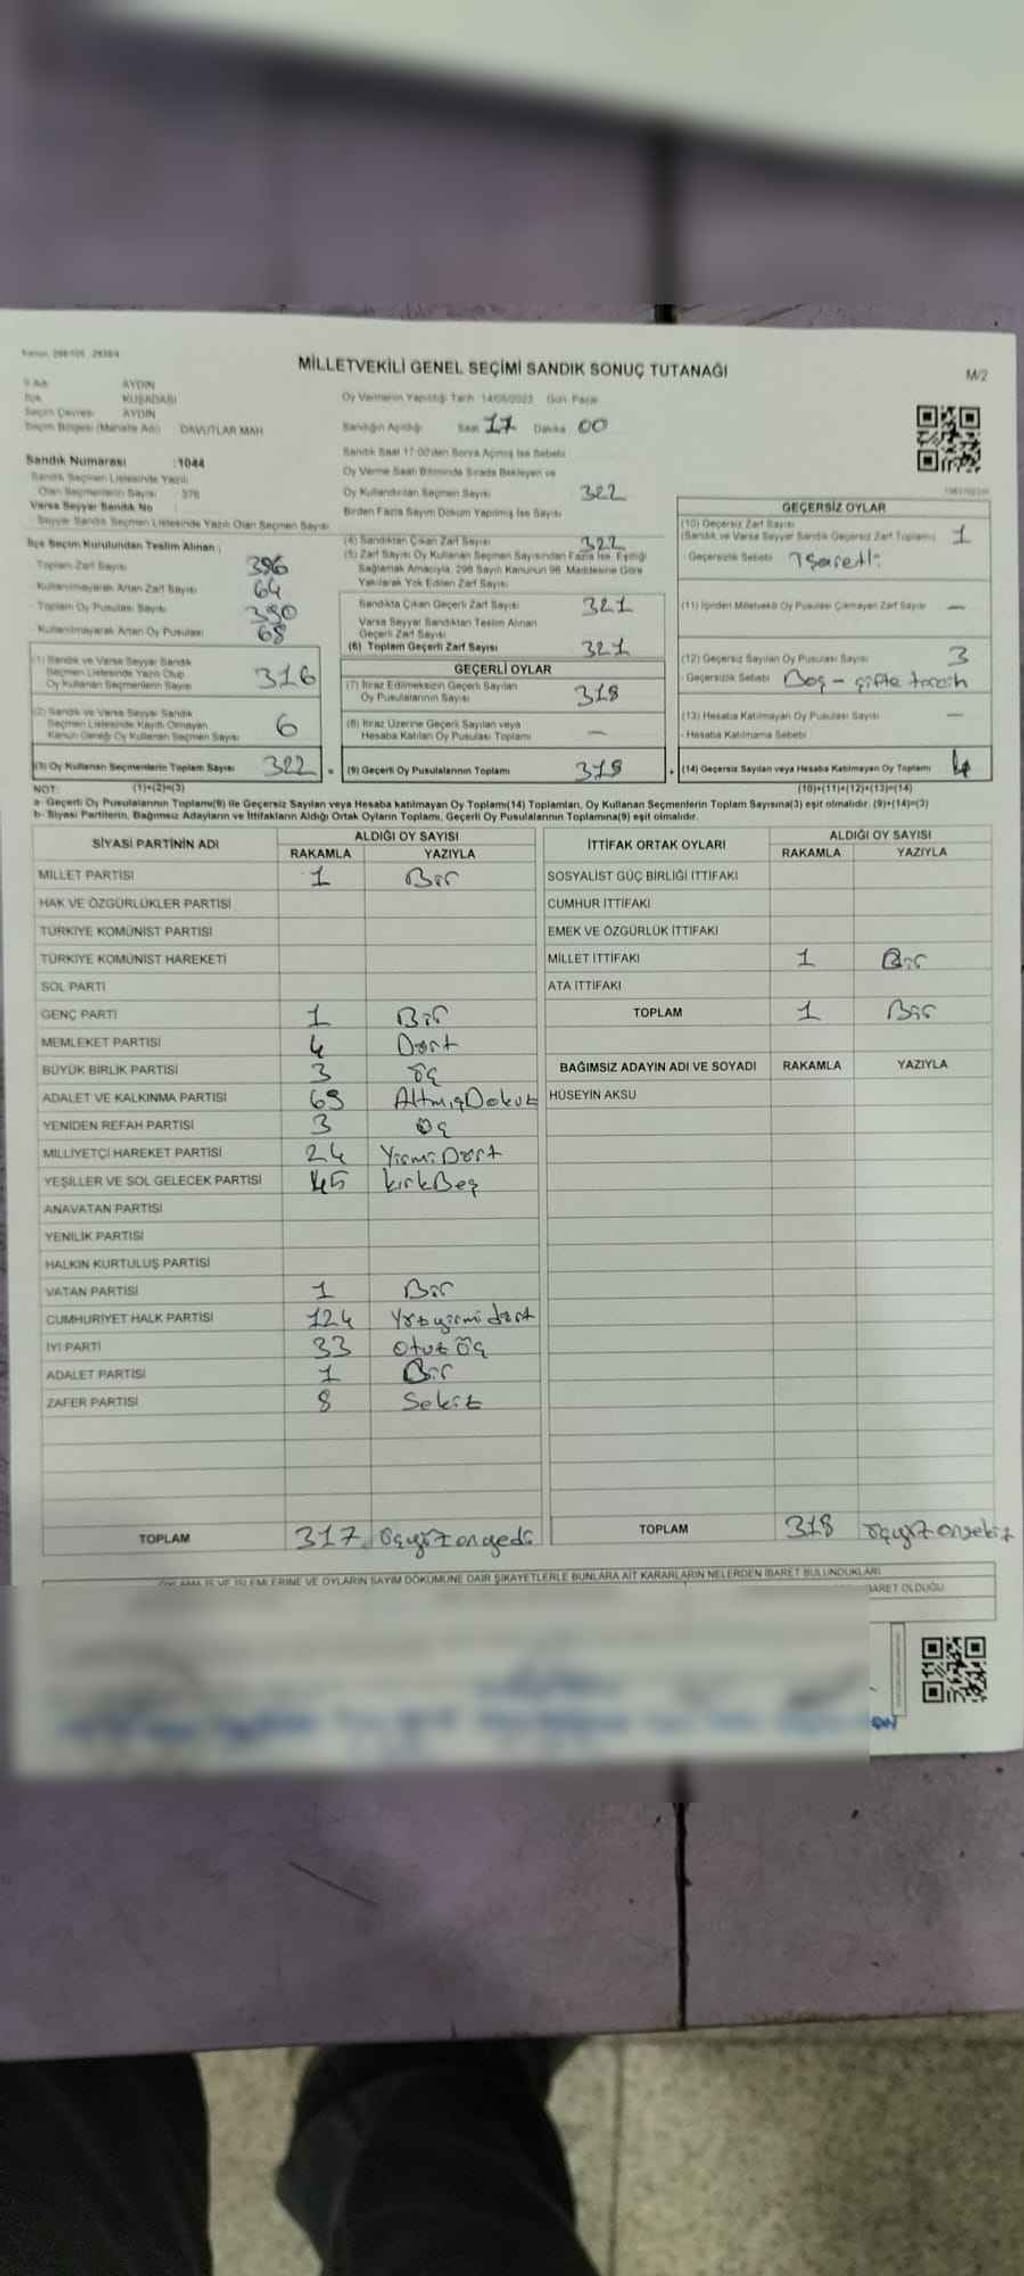 MİLLETVEKİLİ GENEL SEÇİMİ SANDIK SONUÇ TUTANAĞI
M/2
AYDIN
KUŞADASI
Seçim Çevresi AYDIN
DAVUTLAR MAH
Oy Vermenin Yapıldığı Tarih 14/05/2023 Gün Pazar
Sandığın Açıldığı Saat 17 Dakika 00
Sandık Numarası :1044
Sandık Seçmen Listesinde Yazılı
Olan Seçmenlerin Sayısı 376
Varsa Seyyar Sandık No
Seyyar Sandık Seçmen Listesinde Yazılı Olan Seçmen Sayısı
Sandık Saat 17:00'den Sonra Açılmış İse Sebebi
Oy Verme Saati Bitiminde Sırada Bekleyen ve
Oy Kullandırılan Seçmen Sayısı 322
Birden Fazla Sayım Döküm Yapılmış İse Sayısı
İlçe Seçim Kurulundan Teslim Alınan :
Toplam Zarf Sayısı 386
Kullanılmayarak Artan Zarf Sayısı 64
Toplam Oy Pusulası Sayısı 390
Kullanılmayarak Artan Oy Pusulası 68
(1) Sandık ve Varsa Seyyar Sandık
Seçmen Listesinde Yazılı Olup
Oy Kullanan Seçmenlerin Sayısı 316
(2) Sandık ve Varsa Seyyar Sandık
Seçmen Listesinde Kayıtlı Olmayan
Kanun Gereği Oy Kullanan Seçmen Sayısı 6
(3) Oy Kullanan Seçmenlerin Toplam Sayısı 322
(4) Sandıktan Çıkan Zarf Sayısı 322
(5) Zarf Sayısı Oy Kullanan Seçmen Sayısından Fazla İse, Eşitliği
Sağlamak Amacıyla, 298 Sayılı Kanunun 98. Maddesine Göre
Yakılarak Yok Edilen Zarf Sayısı
Sandıkta Çıkan Geçerli Zarf Sayısı 321
Varsa Seyyar Sandıktan Teslim Alınan
Geçerli Zarf Sayısı
(6) Toplam Geçerli Zarf Sayısı 321
GEÇERLİ OYLAR
(7) İtiraz Edilmeksizin Geçerli Sayılan
Oy Pusulalarının Sayısı 318
(8) İtiraz Üzerine Geçerli Sayılan veya
Hesaba Katılan Oy Pusulası Toplamı —
(9) Geçerli Oy Pusulalarının Toplamı 318
GEÇERSİZ OYLAR
(10) Geçersiz Zarf Sayısı
(Sandık ve Varsa Seyyar Sandık Geçersiz Zarf Toplamı) 1
Geçersizlik Sebebi İşaretli
(11) İçinden Milletvekili Oy Pusulası Çıkmayan Zarf Sayısı —
(12) Geçersiz Sayılan Oy Pusulası Sayısı 3
Geçersizlik Sebebi Boş - çifte tercih
(13) Hesaba Katılmayan Oy Pusulası Sayısı —
Hesaba Katılmama Sebebi
(14) Geçersiz Sayılan veya Hesaba Katılmayan Oy Toplamı 4
NOT: (1)+(2)=(3)
(10)+(11)+(12)+(13)=(14)
a- Geçerli Oy Pusulalarının Toplamı(9) ile Geçersiz Sayılan veya Hesaba katılmayan Oy Toplamı(14) Toplamları, Oy Kullanan Seçmenlerin Toplam Sayısına(3) eşit olmalıdır. (9)+(14)=(3)
b- Siyasi Partilerin, Bağımsız Adayların ve İttifakların Aldığı Ortak Oyların Toplamı, Geçerli Oy Pusulalarının Toplamına(9) eşit olmalıdır.
SİYASİ PARTİNİN ADI ALDIĞI OY SAYISI
RAKAMLA YAZIYLA
MİLLET PARTİSİ 1 Bir
HAK VE ÖZGÜRLÜKLER PARTİSİ
TÜRKİYE KOMÜNİST PARTİSİ
TÜRKİYE KOMÜNİST HAREKETİ
SOL PARTİ
GENÇ PARTİ 1 Bir
MEMLEKET PARTİSİ 4 Dört
BÜYÜK BİRLİK PARTİSİ 3 Üç
ADALET VE KALKINMA PARTİSİ 69 AltmışDokuz
YENİDEN REFAH PARTİSİ 3 Üç
MİLLİYETÇİ HAREKET PARTİSİ 24 YirmiDört
YEŞİLLER VE SOL GELECEK PARTİSİ 45 kırkBeş
ANAVATAN PARTİSİ
YENİLİK PARTİSİ
HALKIN KURTULUŞ PARTİSİ
VATAN PARTİSİ 1 Bir
CUMHURİYET HALK PARTİSİ 124 Yüzyirmi dört
İYİ PARTİ 33 Otuz Üç
ADALET PARTİSİ 1 Bir
ZAFER PARTİSİ 8 Sekiz
TOPLAM 317 Üçyüz onyedi
İTTİFAK ORTAK OYLARI ALDIĞI OY SAYISI
RAKAMLA YAZIYLA
SOSYALİST GÜÇ BİRLİĞİ İTTİFAKI
CUMHUR İTTİFAKI
EMEK VE ÖZGÜRLÜK İTTİFAKI
MİLLET İTTİFAKI 1 Bir
ATA İTTİFAKI
TOPLAM 1 Bir
BAĞIMSIZ ADAYIN ADI VE SOYADI RAKAMLA YAZIYLA
HÜSEYİN AKSU
TOPLAM 318 Üçyüz onsekiz
OYLAMA İŞ VE İŞLEMLERİNE VE OYLARIN SAYIM DÖKÜMÜNE DAİR ŞİKAYETLERLE BUNLARA AİT KARARLARIN NELERDEN İBARET BULUNDUKLARI
İBARET OLDUĞU